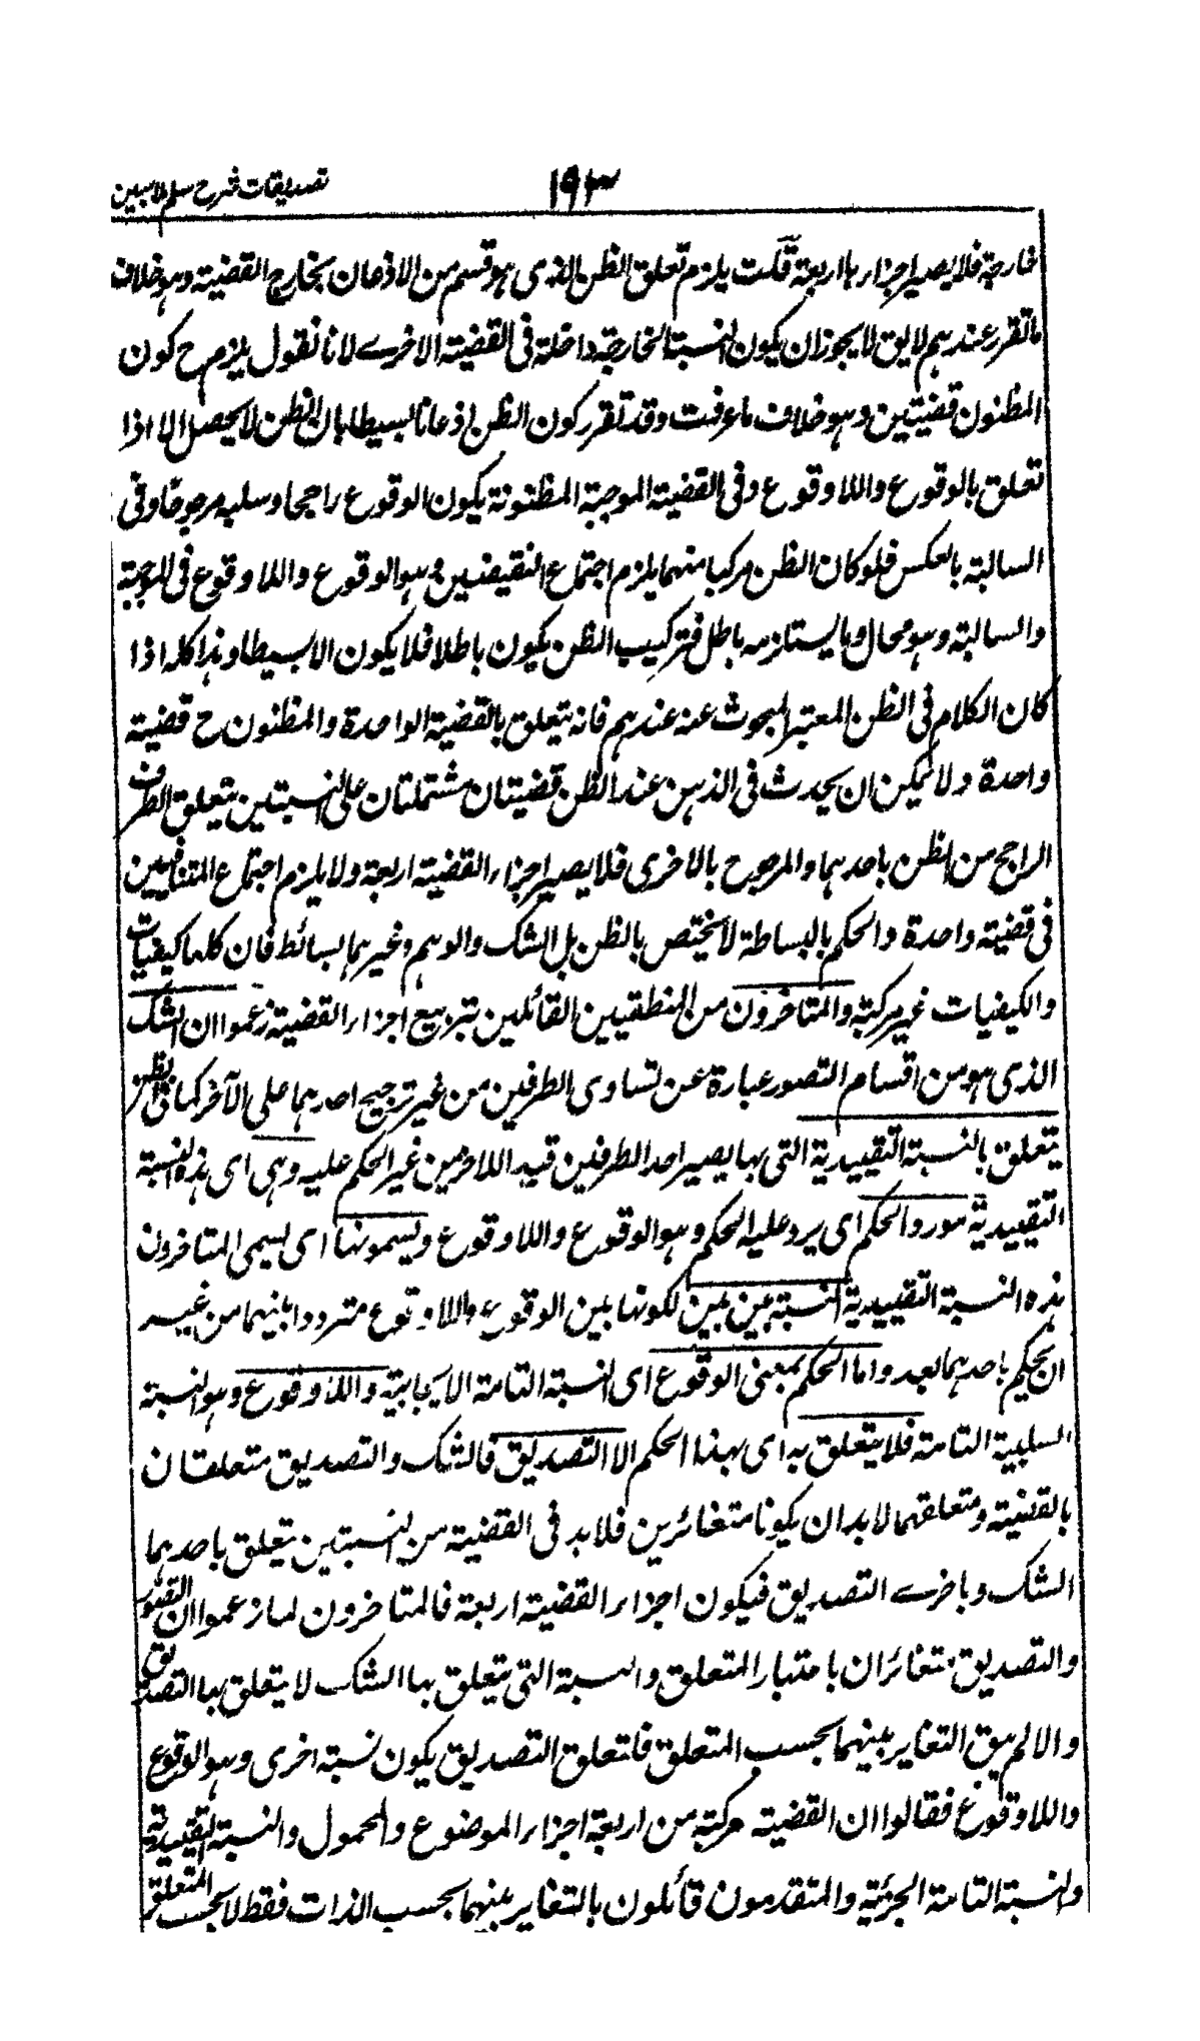 تصديقات شرح سلم لملا مبين
١٩٣
خارجة فلا يصير اجزاءها اربعة قلت يلزم تعلق الظن الذي هو قسم من الاذعان بخارج القضية وهو خلاف
ما تقرر عندهم لا يق لا يجوز ان يكون النسبة الخارجة داخلة في القضية الاخرے لانا نقول يلزم ح كون
المظنون قضيتين وهو خلاف ما عرفت وقد تقرر كون الظن اذعانا بسيطا بان الظن لا يحصل الا اذا
تعلق بالوقوع واللاوقوع وفي القضية الموجبة المظنونة يكون الوقوع راجحا وسلبه مرجوحا وفي
السالبة بالعكس فلو كان الظن مركبا منهما يلزم اجتماع النقيضين وهو الوقوع واللاوقوع في الموجبة
والسالبة وهو محال وما يستلزمه باطل فتركيب الظن يكون باطلا فلا يكون الا بسيطا وهذا كله اذا
كان الكلام في الظن المعتبر المبحوث عنه عندهم فانه يتعلق بالقضية الواحدة والمظنون ح قضية
واحدة ولا يمكن ان يحدث في الذهن عند الظن قضيتان مشتملتان على النسبتين يتعلق الطرف
الراجح من الظن باحدهما والمرجوح بالاخرى فلا يصير اجزاء القضية اربعة ولا يلزم اجتماع المتنافيين
في قضية واحدة والحكم بالبساطة لا يختص بالظن بل الشك والوهم وغيرهما بسائط فان كلها كيفيات
والكيفيات غير مركبة والمتاخرون من المنطقيين القائلين بتربيع اجزاء القضية زعموا ان الشك
الذي هو من اقسام التصور عبارة عن تساوى الطرفين من غير ترجيح احدهما على الآخر كما في الظن
يتعلق بالنسبة التقييدية التي بها يصير احد الطرفين قيد اللاخر من غير الحكم عليه وهي اى هذه النسبة
التقييدية مورد الحكم اى يرد عليه الحكم وهو الوقوع واللاوقوع ويسمونها اى يسمى المتاخرون
هذه النسبة التقييدية النسبة بين بين لكونها بين الوقوع واللاوقوع مترددا بينهما من غير
ان يحكم باحدهما بعد واما الحكم بمعنى الوقوع اى النسبة التامة الايجابية واللاوقوع وهو النسبة
السلبية التامة فلا يتعلق به اى بهذا الحكم الا التصديق فالشك والتصديق متعلقان
بالقضية ومتعلقهما لا بد ان يكونا متغائرين فلا بد في القضية من النسبتين يتعلق باحدهما
الشك وباخرے التصديق فيكون اجزاء القضية اربعة فالمتاخرون لما زعموا ان التصور
والتصديق متغائران باعتبار المتعلق والنسبة التي يتعلق بها الشك لا يتعلق بها التصديق
والا لم يبق التغاير بينهما بحسب المتعلق فمتعلق التصديق يكون نسبة اخرى وهو الوقوع
واللاوقوع فقالوا ان القضية مركبة من اربعة اجزاء الموضوع والمحمول والنسبة التقييدية
والنسبة التامة الجزئية والمتقدمون قائلون بالتغاير بينهما بحسب الذات فقط لا بحسب المتعلق